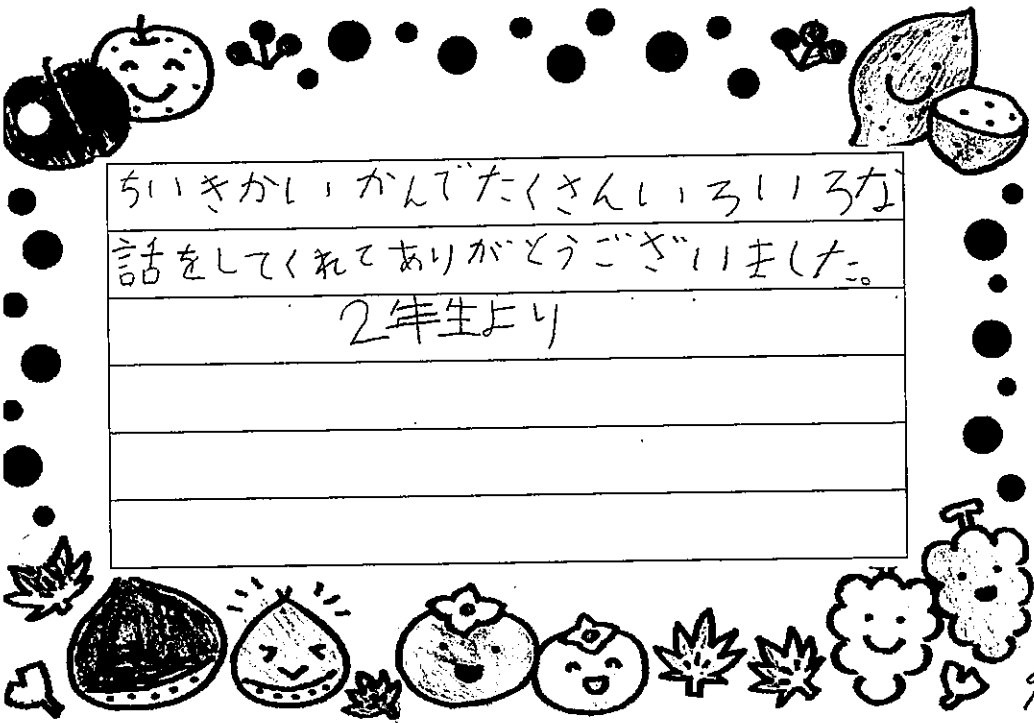 ちいきかいかんでたくさんいろいろな
話をしてくれてありがとうございました。
2年生より